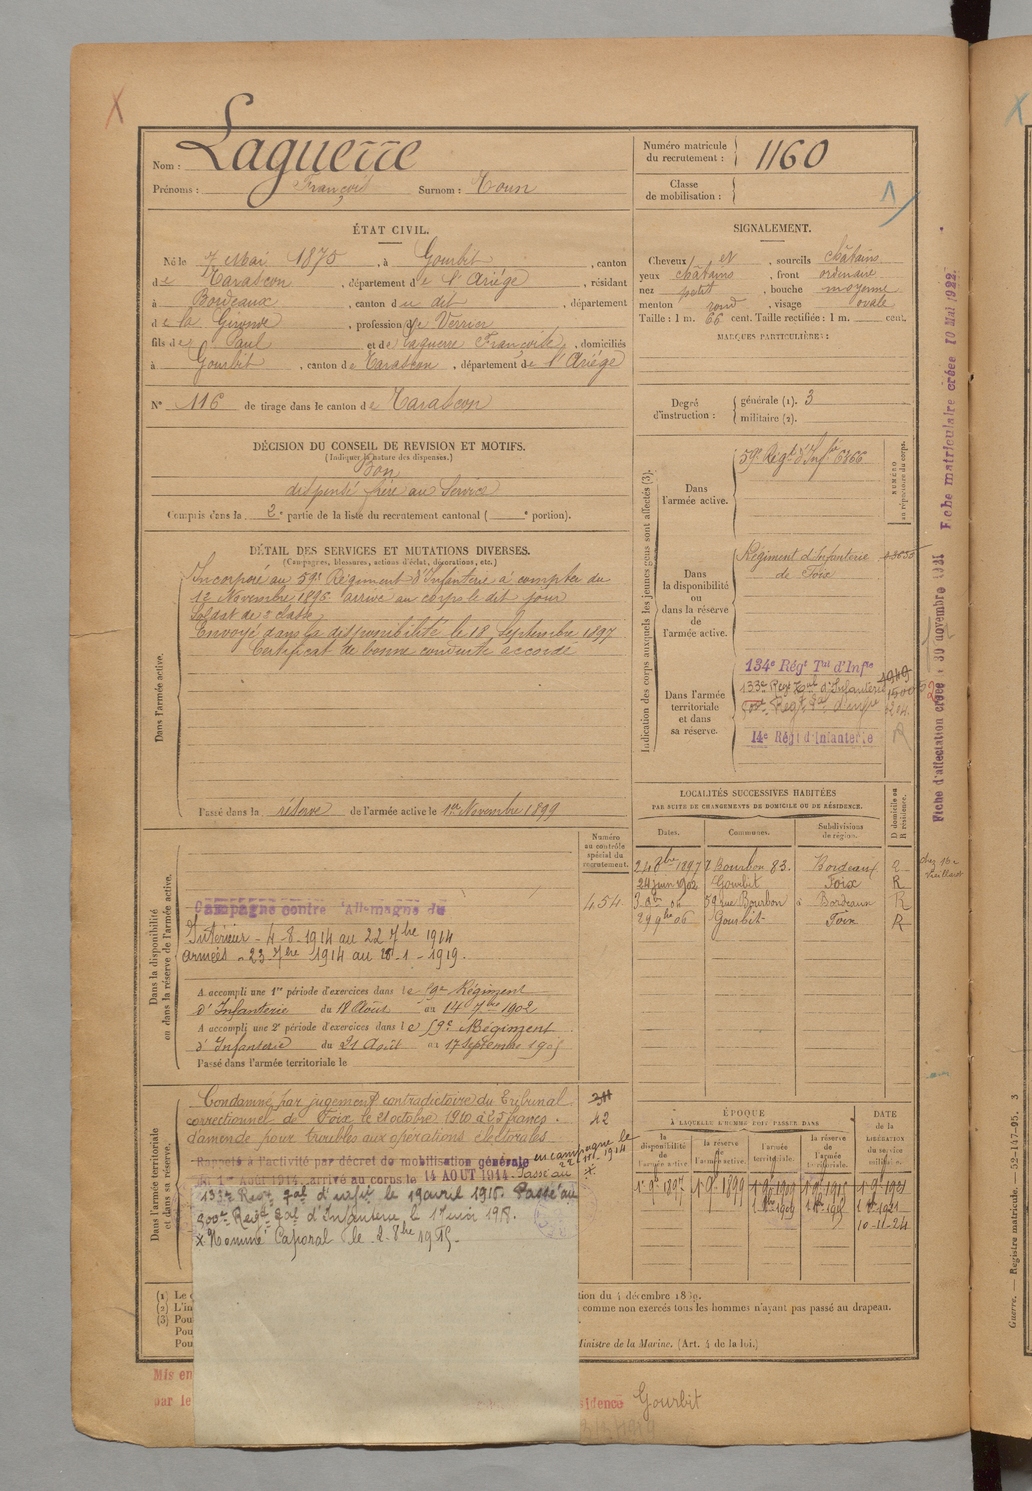 Nom : Laguerre
Prénoms : François Surnom : Toun
Numéro matricule du recrutement : 1160
Classe de mobilisation :
ÉTAT CIVIL.
Né le 7 Mai 1875, à Gourbit, canton
de Tarascon, département de l'Ariége, résidant
à Bordeaux, canton du dit, département
de la Gironde, profession de Verrier
fils de Paul et de Laguerre Françoise, domiciliés
à Gourbit, canton de Tarascon, département de l'Ariége
N° 116 de tirage dans le canton de Tarascon
DÉCISION DU CONSEIL DE REVISION ET MOTIFS.
(Indiquer la nature des dispenses.)
Bon
dispensé frère au Service
Compris dans la 2e partie de la liste du recrutement cantonal ( e portion).
DÉTAIL DES SERVICES ET MUTATIONS DIVERSES.
(Campagnes, blessures, actions d'éclat, décorations, etc.)
Dans l'armée active.
Incorporé au 59e Régiment d'Infanterie à compter du
12 Novembre 1896 arrivé au corps le dit jour
Soldat de 2e classe
Envoyé dans la disponibilité le 18 Septembre 1897
Certificat de bonne conduite accordé
Passé dans la réserve de l'armée active le 1er Novembre 1899
Dans la disponibilité
ou dans la réserve de l'armée active.
Numéro
au contrôle
spécial du
recrutement.
454
Campagne contre l'Allemagne du
Intérieur - 4-8-1914 au 22 7bre 1914
armées - 23 7bre 1914 au -1-1919.
A accompli une 1re période d'exercices dans le 59e Régiment
d'Infanterie du 18 Août au 14 7bre 1902
A accompli une 2e période d'exercices dans le 59e Régiment
d'Infanterie du 21 Août au 17 Septembre 1905
Passé dans l'armée territoriale le
Dans l'armée territoriale
et dans sa réserve.
Condamné par jugement contradictoire du Tribunal
correctionnel de Foix le 21 octobre 1910 à 25 francs
d'amende pour troubles aux opérations électorales
42
en campagne le
Rappelé à l'activité par décret de mobilisation générale
du 1er Août 1914, arrivé au corps le 14 AOUT 1914. Passé au
133e Regt tal d'infie le 19 avril 1915. Passé au
500e Regt tal d'Infanterie le
x Nommé Caporal le 2 8bre 1915.
SIGNALEMENT.
Cheveux et, sourcils châtains
yeux châtains, front ordinaire
nez petit, bouche moyenne
menton rond, visage ovale
Taille : 1 m. 66 cent. Taille rectifiée : 1 m. cent.
MARQUES PARTICULIÈRES :
Degré d'instruction : générale (1). 3
militaire (2).
Indication des corps auxquels les jeunes gens sont affectés (3).
NUMÉRO
au répertoire du corps.
Dans
l'armée active.
59e Régt d'Infie 6366
Dans
la disponibilité
ou
dans la réserve
de
l'armée active.
Régiment d'Infanterie
de Foix
Dans l'armée
territoriale
et dans
sa réserve.
134e Régt Tal d'Infie
133e Regt Tal d'Infanterie 1500
14e Régt d'Infanterie
R
LOCALITÉS SUCCESSIVES HABITÉES
PAR SUITE DE CHANGEMENTS DE DOMICILE OU DE RÉSIDENCE.
D domicile ou
R résidence.
Dates. Communes. Subdivisions de région.
1897 r Bourbon 83. Bordeaux R
24 juin 1902 Gourbit Foix R
59 rue Bourbon à Bordeaux R
29 9bre 06 Gourbit Foix R
ÉPOQUE
À LAQUELLE L'HOMME DOIT PASSER DANS
la disponibilité de l'armée active
la réserve de l'armée active.
l'armée territoriale.
la réserve de l'armée territoriale.
DATE
de la
LIBÉRATION
du service militaire.
1er 9e 1897 1er 9e 1899 1er 9e 1909 1er 9e 1915 1er 9e 1921
10-11-24
(1) Le
(2) L'in
(3) Pou
Pou
Pou
du 4 décembre 1889.
comme non exercés tous les hommes n'ayant pas passé au drapeau.
Ministre de la Marine. (Art. 4 de la loi.)
Mis en
par le
Gourbit
Fiche d'affectation créée 30 novembre 1921
Fiche matriculaire créée 10 Mai 1922.
Guerre. — Registre matricule. — 52-147-95. 3